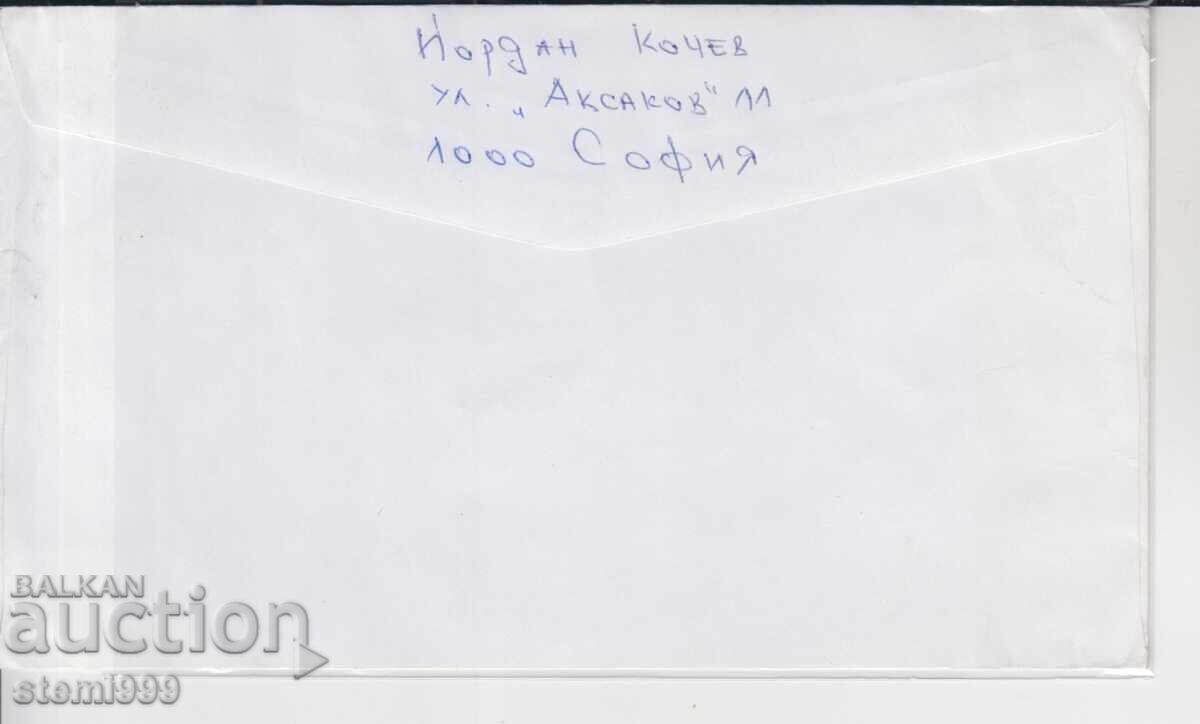 Йордан Кочев
ул. „Аксаков" 11
1000 София
BALKAN
auction
stemi999